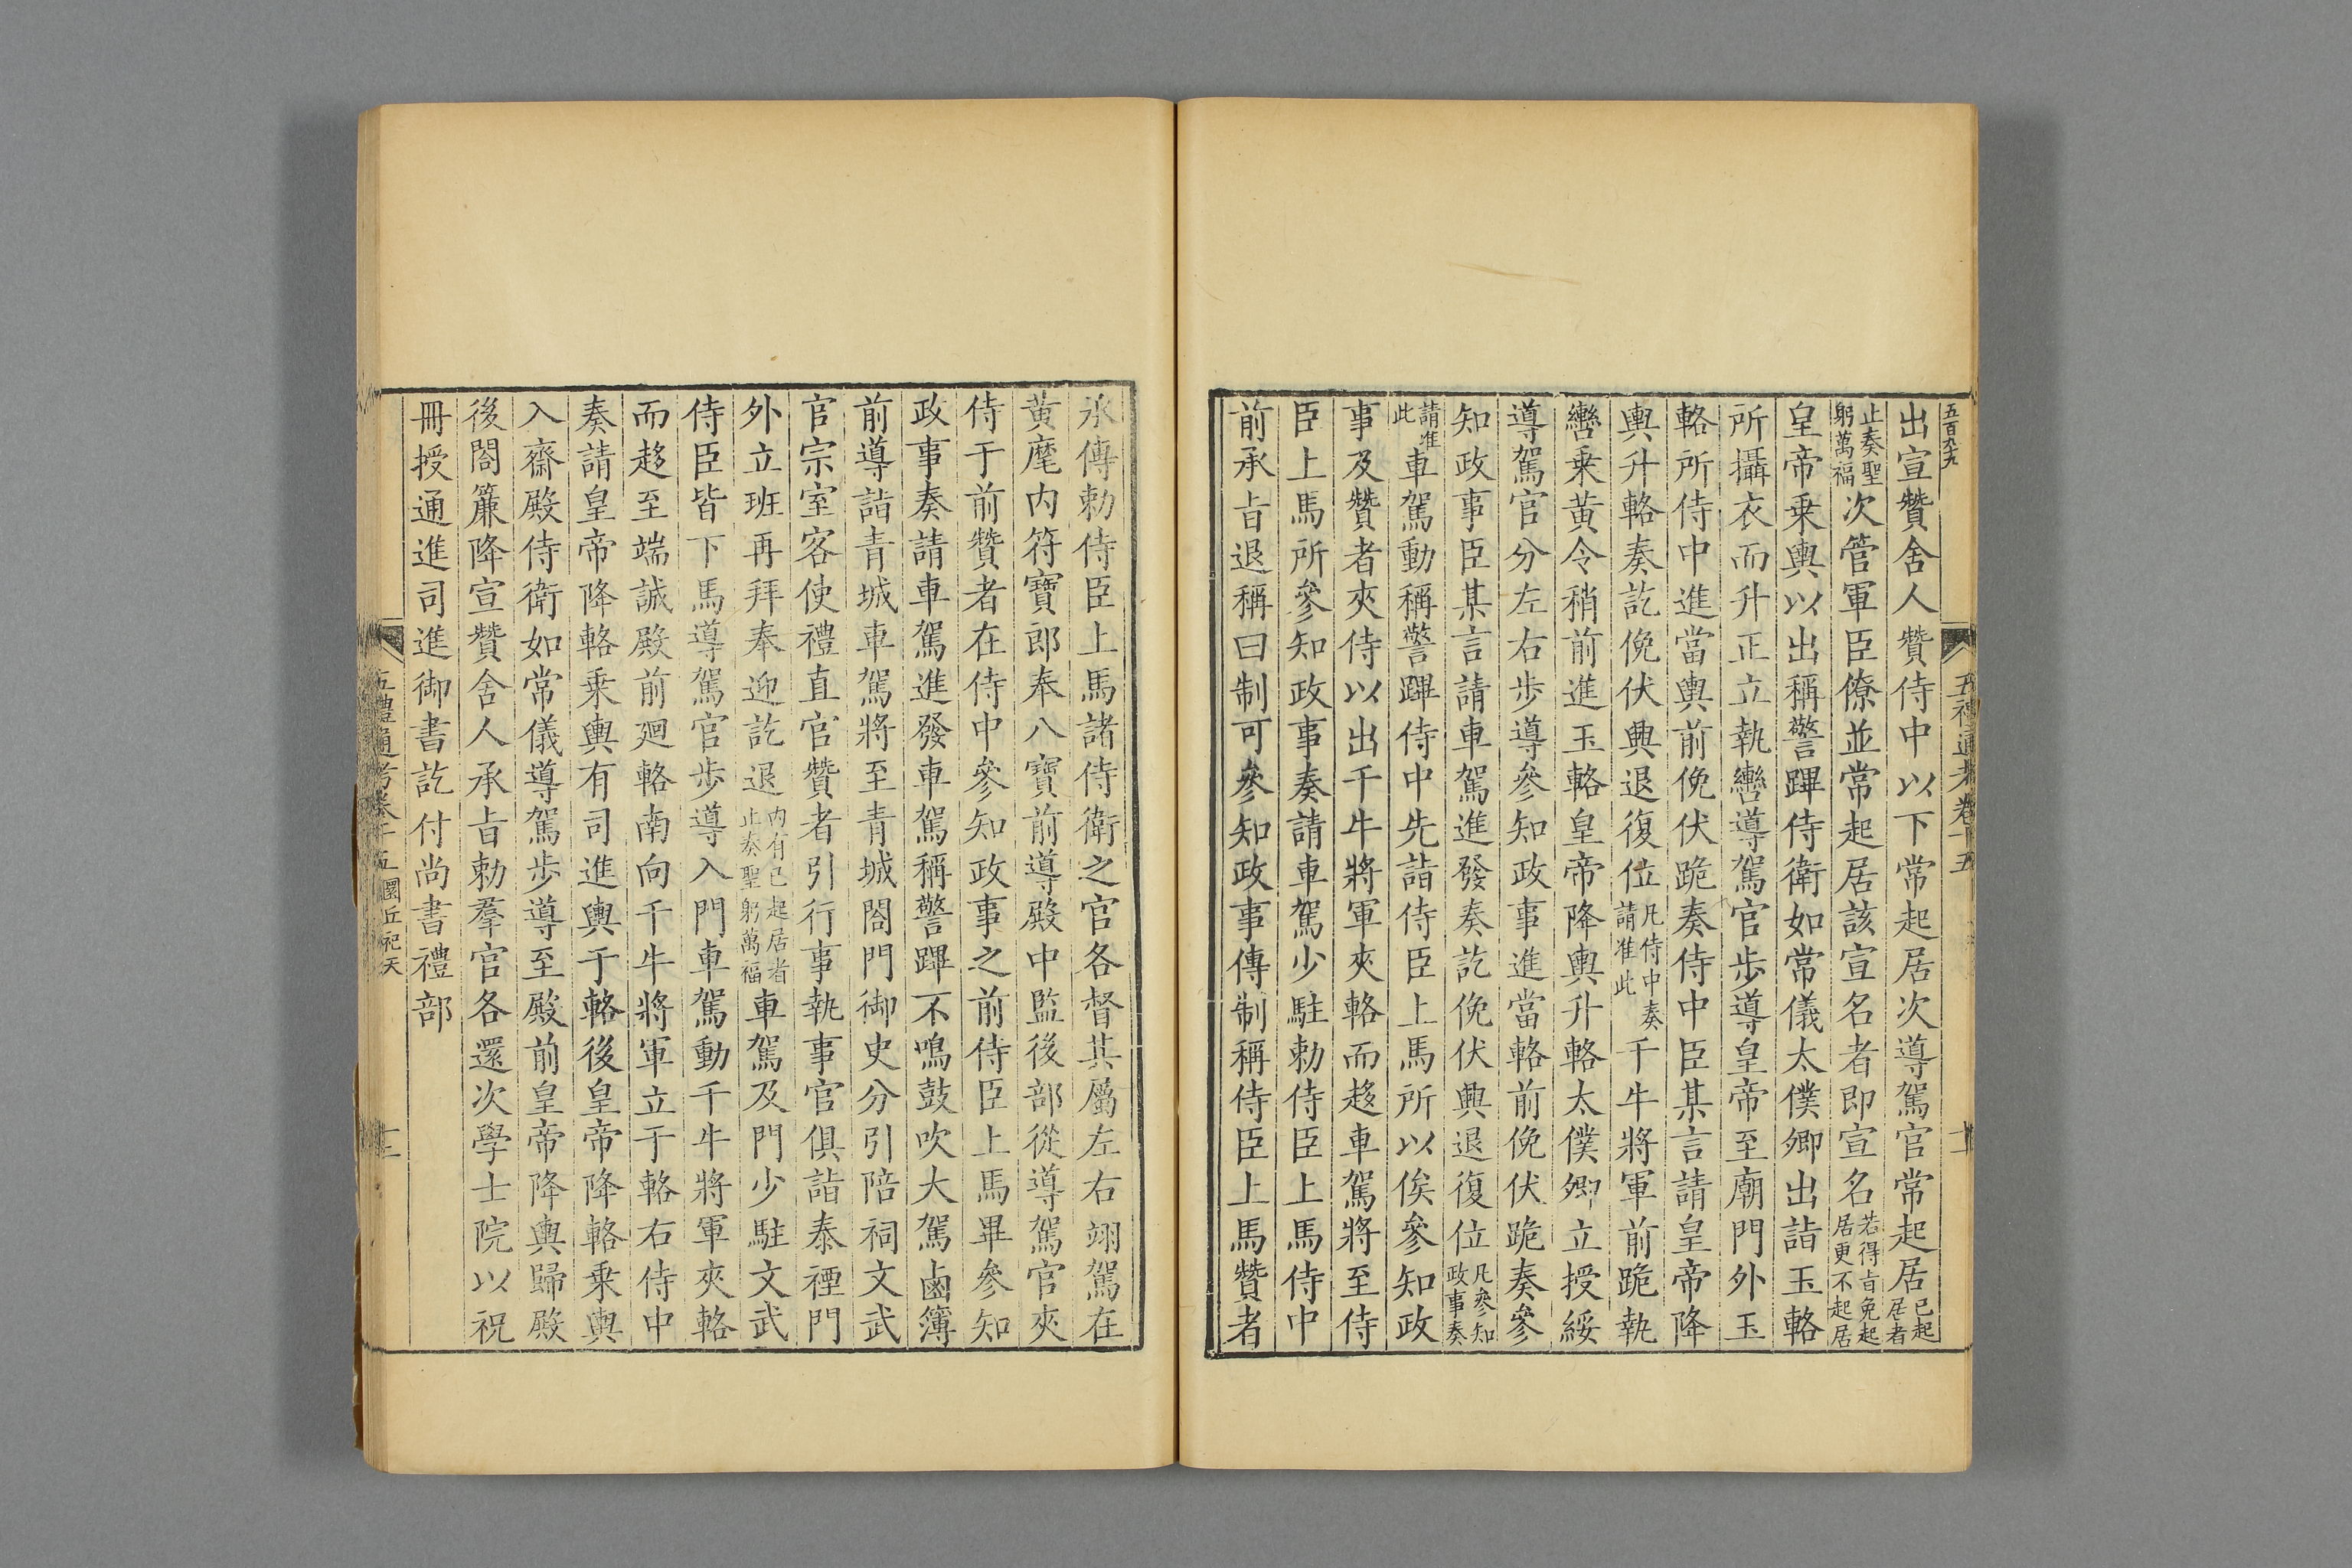 五百九十九
五禮通考卷十五
十一
出宣贊舍人贊侍中以下常起居次導駕官常起居已起居者
止奏聖躬萬福次管軍臣僚並常起居該宣名者即宣名若得旨免起居更不起居
皇帝乗輿以出稱警蹕侍衛如常儀太僕卿出詣玉輅
所攝衣而升正立執轡導駕官步導皇帝至廟門外玉
輅所侍中進當輿前俛伏跪奏侍中臣某言請皇帝降
輿升輅奏訖俛伏興退復位凡侍中奏請准此千牛將軍前跪執
轡乗黃令稍前進玉輅皇帝降輿升輅太僕卿立授綏
導駕官分左右步導參知政事進當輅前俛伏跪奏參
知政事臣某言請車駕進發奏訖俛伏興退復位凡參知政事奏
請准此車駕動稱警蹕侍中先詣侍臣上馬所以俟參知政
事及贊者夾侍以出千牛將軍夾輅而趍車駕將至侍
臣上馬所參知政事奏請車駕少駐勅侍臣上馬侍中
前承旨退稱曰制可參知政事傳制稱侍臣上馬贊者
承傳勅侍臣上馬諸侍衛之官各督其屬左右翊駕在
黃麾内符寶郎奉八寶前導殿中監後部從導駕官夾
侍于前贊者在侍中參知政事之前侍臣上馬畢參知
政事奏請車駕進發車駕稱警蹕不鳴鼓吹大駕鹵簿
前導詣青城車駕將至青城閤門御史分引陪祠文武
官宗室客使禮直官贊者引行事執事官俱詣泰禋門
外立班再拜奉迎訖退内有已起居者止奏聖躬萬福車駕及門少駐文武
侍臣皆下馬導駕官步導入門車駕動千牛將軍夾輅
而趍至端誠殿前迴輅南向千牛將軍立于輅右侍中
奏請皇帝降輅乗輿有司進輿于輅後皇帝降輅乗輿
入齋殿侍衛如常儀導駕步導至殿前皇帝降輿歸殿
後閤簾降宣贊舍人承旨勅羣官各還次學士院以祝
冊授通進司進御書訖付尚書禮部
五禮通考卷十五 圜丘祀天
十二